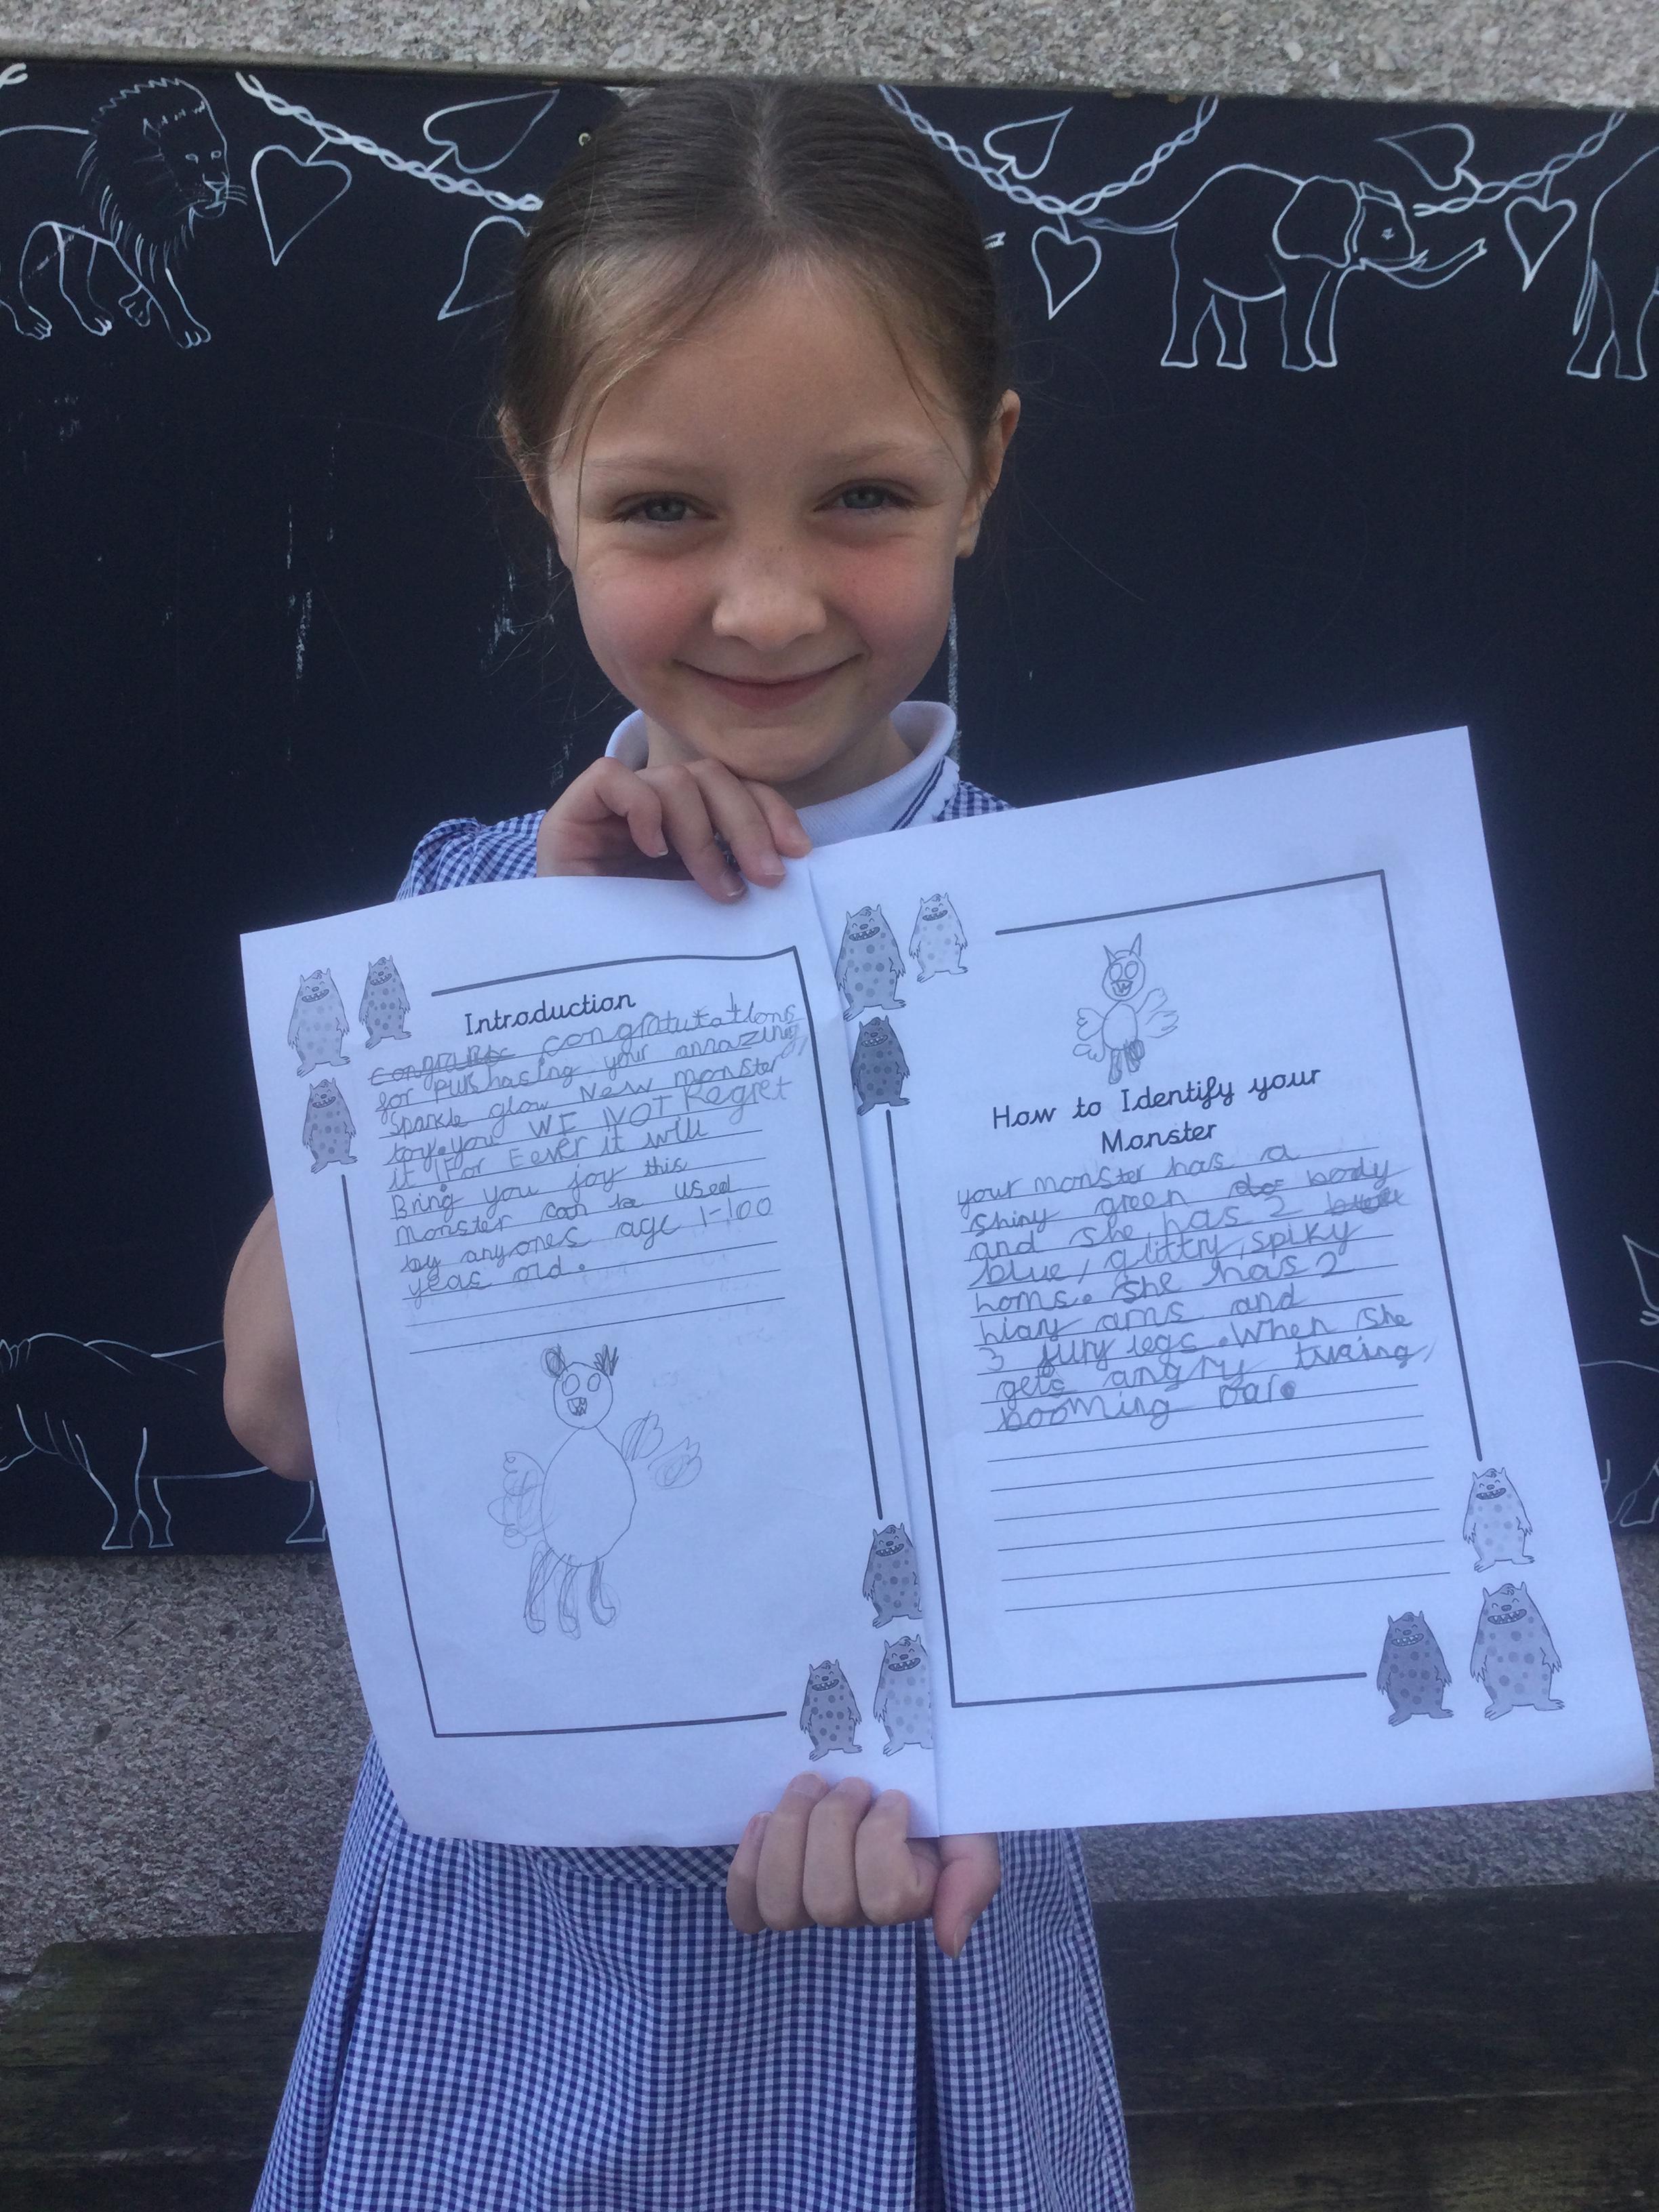 Introduction
congratulations
for purhasing your amazing,
Sparkle glow New monster
toy. you WI NOT Regret
it ! For Eever it will
Bring you joy this
monster can be used
by anyones age 1-100
yeas old.
How to Identify your
Monster
your monster has a
shiny green body
and she has 2
blue, glittry, spiky
horns. She has 2
hiary arms and
3 fury legs. When she
gets angry
booming